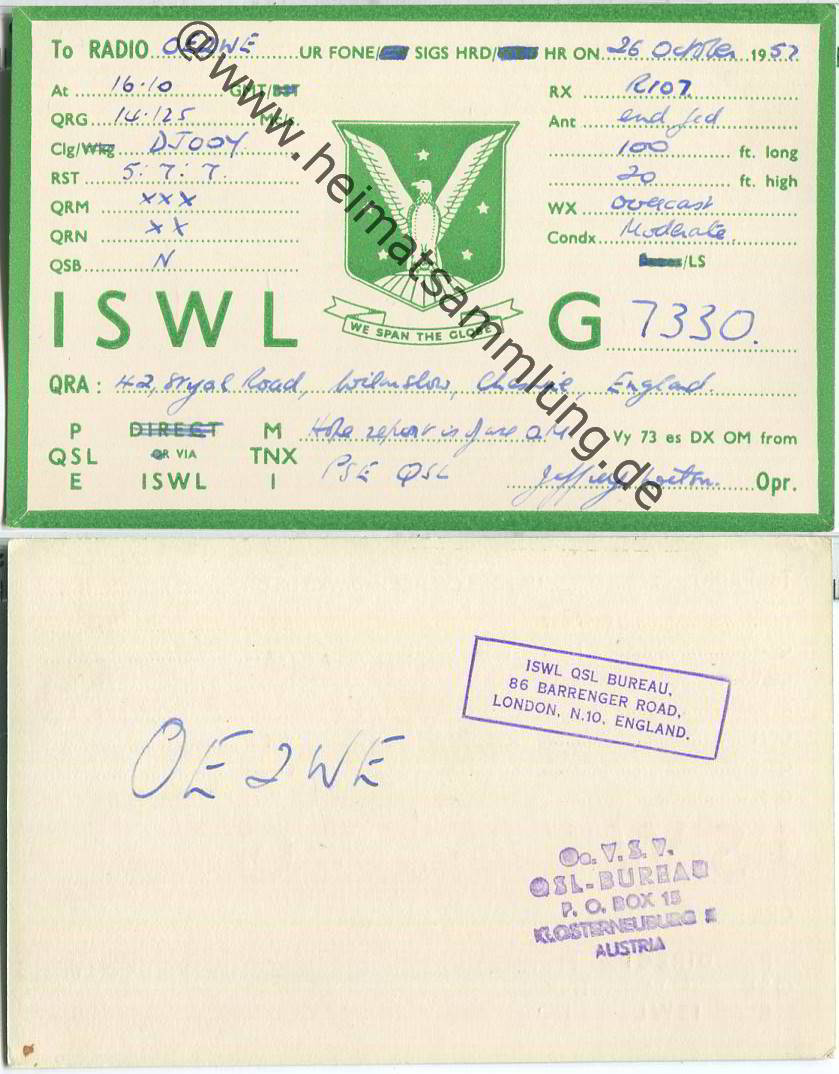 To RADIO OE2WE UR FONE/ SIGS HRD/ HR ON 26 October 1957
At 16·10 GMT/BST
RX R107
QRG 14·125 Mc/s
Ant end fed
Clg/Wkg DJ0OY
100 ft. long
RST 5·7·7
20 ft. high
QRM XXX
WX overcast
QRN XX
Condx Moderate.
QSB N
/LS
WE SPAN THE GLOBE
ISWL G 7330.
QRA : 42, Styal Road, Wilmslow, Cheshire, England.
P DIRECT M Hope report is of use OM Vy 73 es DX OM from
QSL OR VIA TNX
E ISWL I PSE QSL Jeffrey Opr.
@www.heimatsammlung.de
ISWL QSL BUREAU,
86 BARRENGER ROAD,
LONDON, N.10, ENGLAND.
OE2WE
Oe. V. S. V.
QSL-BUREAU
P. O. BOX 15
KLOSTERNEUBURG E
AUSTRIA